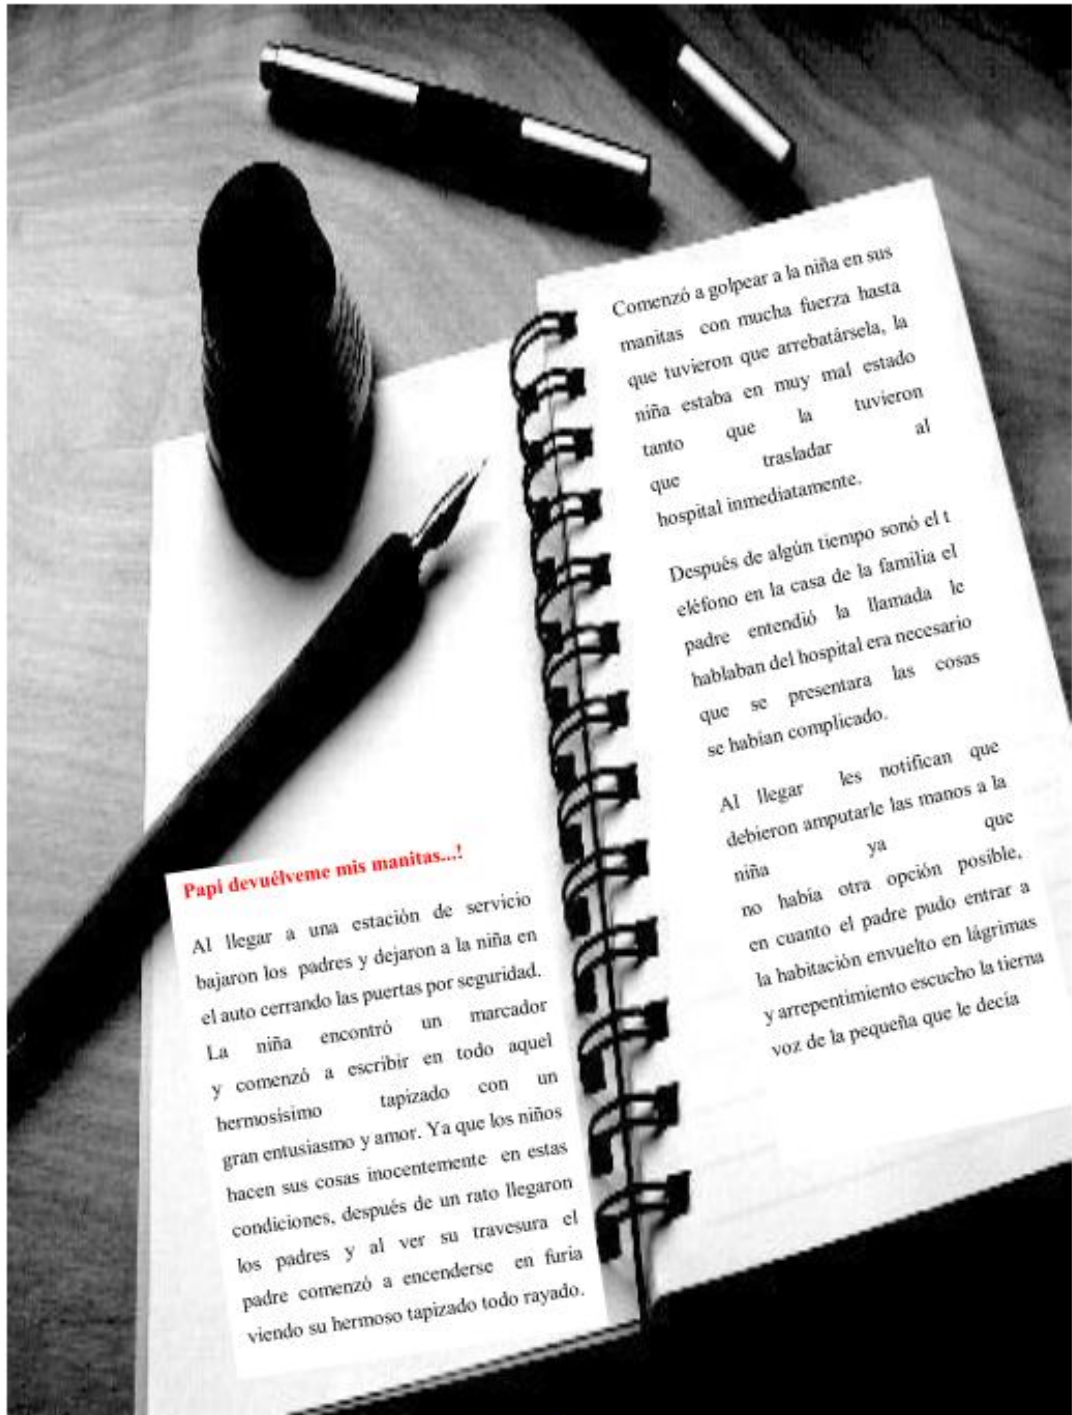 Papi devuélveme mis manitas...!
Al llegar a una estación de servicio
bajaron los padres y dejaron a la niña en
el auto cerrando las puertas por seguridad.
La niña encontró un marcador
y comenzó a escribir en todo aquel
hermosísimo tapizado con un
gran entusiasmo y amor. Ya que los niños
hacen sus cosas inocentemente en estas
condiciones, después de un rato llegaron
los padres y al ver su travesura el
padre comenzó a encenderse en furia
viendo su hermoso tapizado todo rayado.
Comenzó a golpear a la niña en sus
manitas con mucha fuerza hasta
que tuvieron que arrebatársela, la
niña estaba en muy mal estado
tanto que la tuvieron
que trasladar al
hospital inmediatamente.
Después de algún tiempo sonó el t
eléfono en la casa de la familia el
padre entendió la llamada le
hablaban del hospital era necesario
que se presentara las cosas
se habían complicado.
Al llegar les notifican que
debieron amputarle las manos a la
niña ya que
no había otra opción posible,
en cuanto el padre pudo entrar a
la habitación envuelto en lágrimas
y arrepentimiento escucho la tierna
voz de la pequeña que le decía